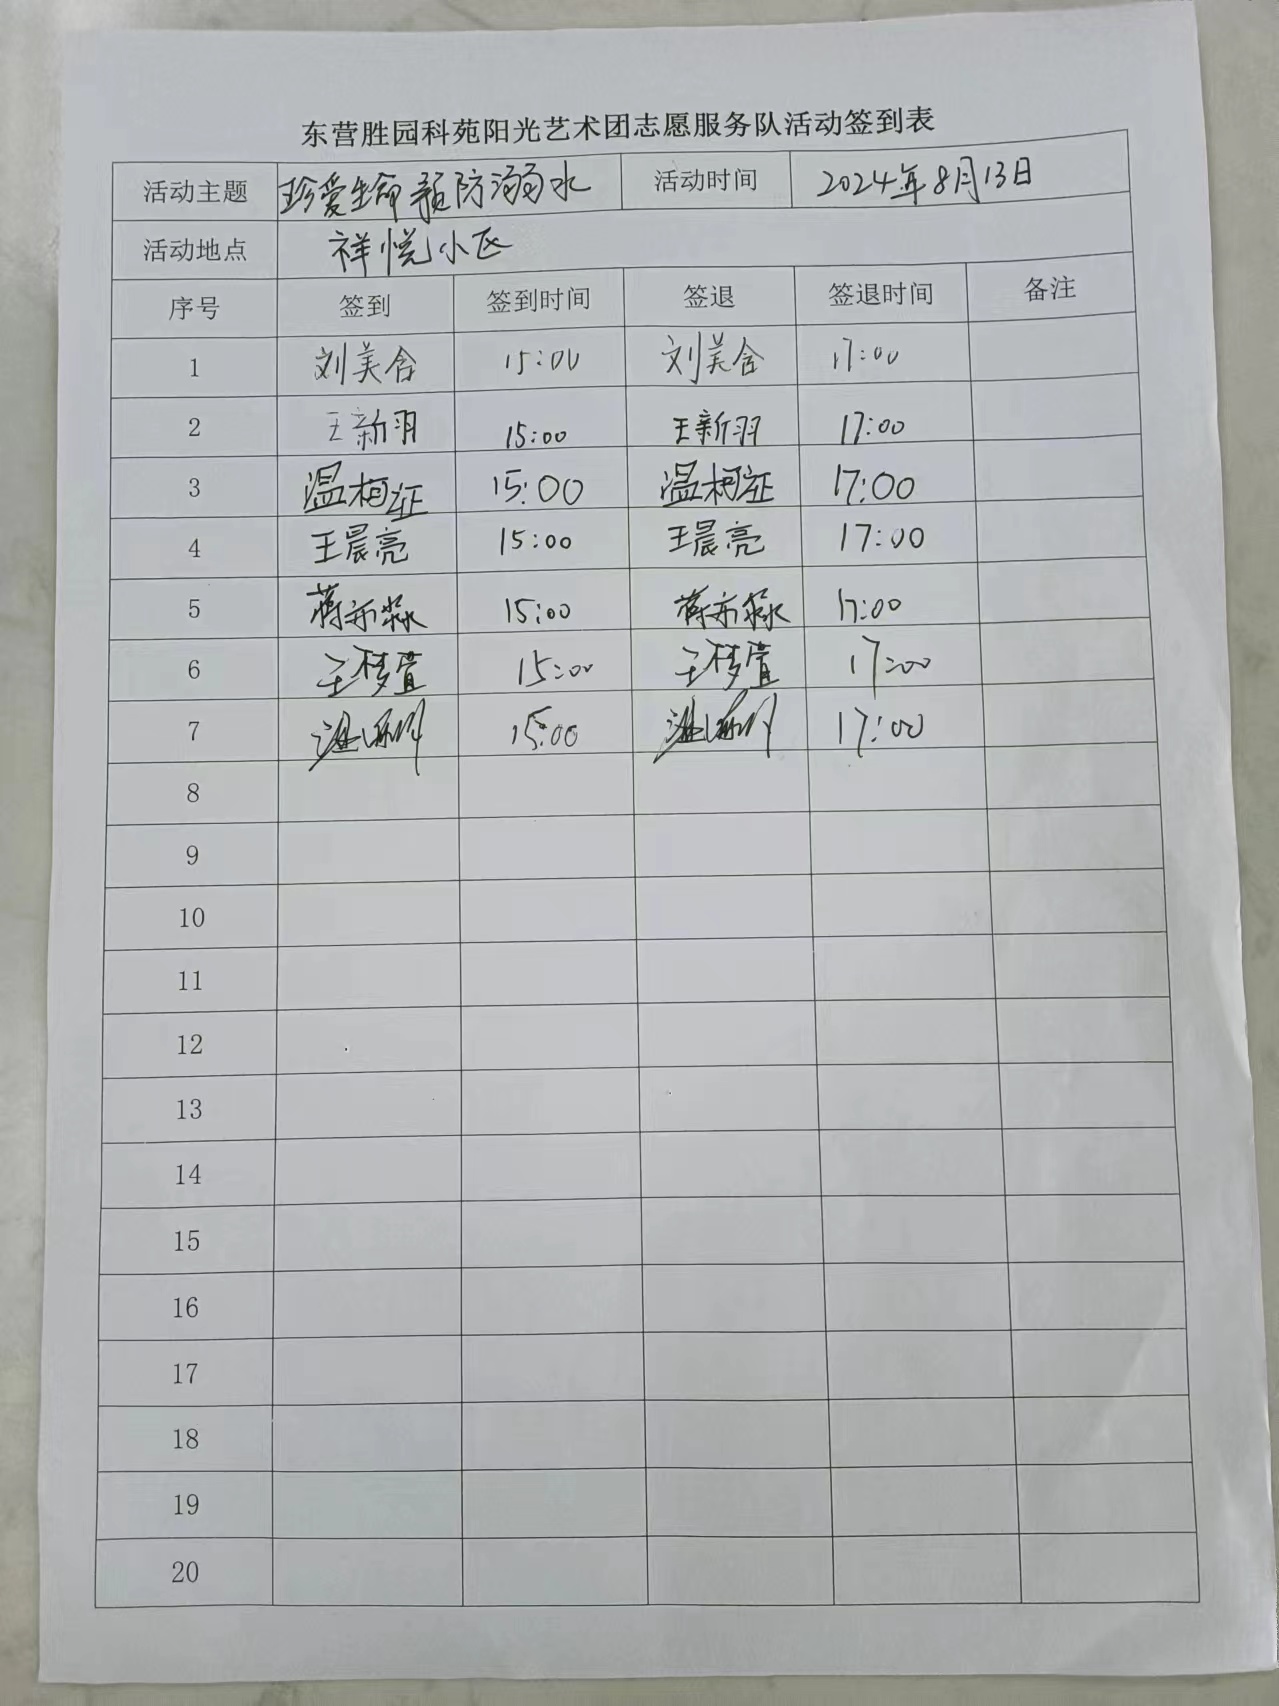 东营胜园科苑阳光艺术团志愿服务队活动签到表
活动主题 珍爱生命预防溺水 活动时间 2024年8月13日
活动地点 祥悦小区
序号 签到 签到时间 签退 签退时间 备注
1 刘美含 15:00 刘美含 17:00
2 王新羽 15:00 王新羽 17:00
3 温柯征 15:00 温柯征 17:00
4 王晨亮 15:00 王晨亮 17:00
5 15:00 17:00
6 王梦萱 15:00 王梦萱 17:00
7 15:00 17:00
8
9
10
11
12
13
14
15
16
17
18
19
20